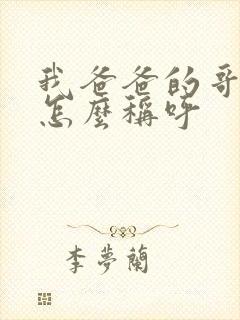 我爸爸的哥
怎麼稱呼
李夢蘭